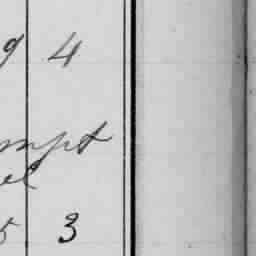 9 4
mpt
el
5 3